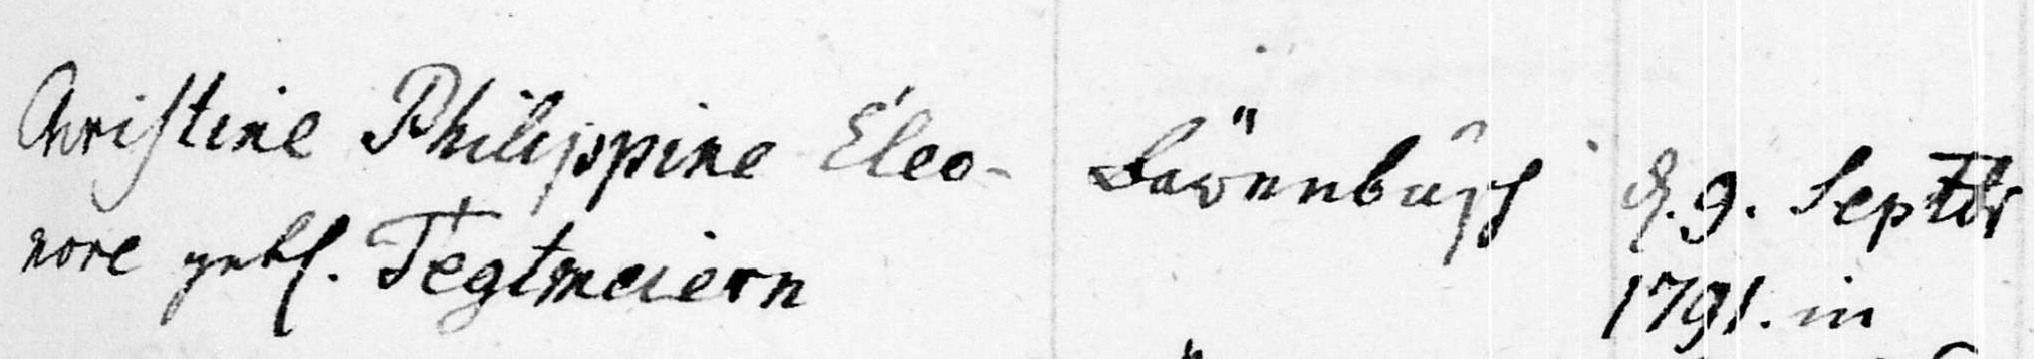 Christine Philippine Eleo-
nore gebl. Tegtmeiern
d. 9. Septbr
1791. in